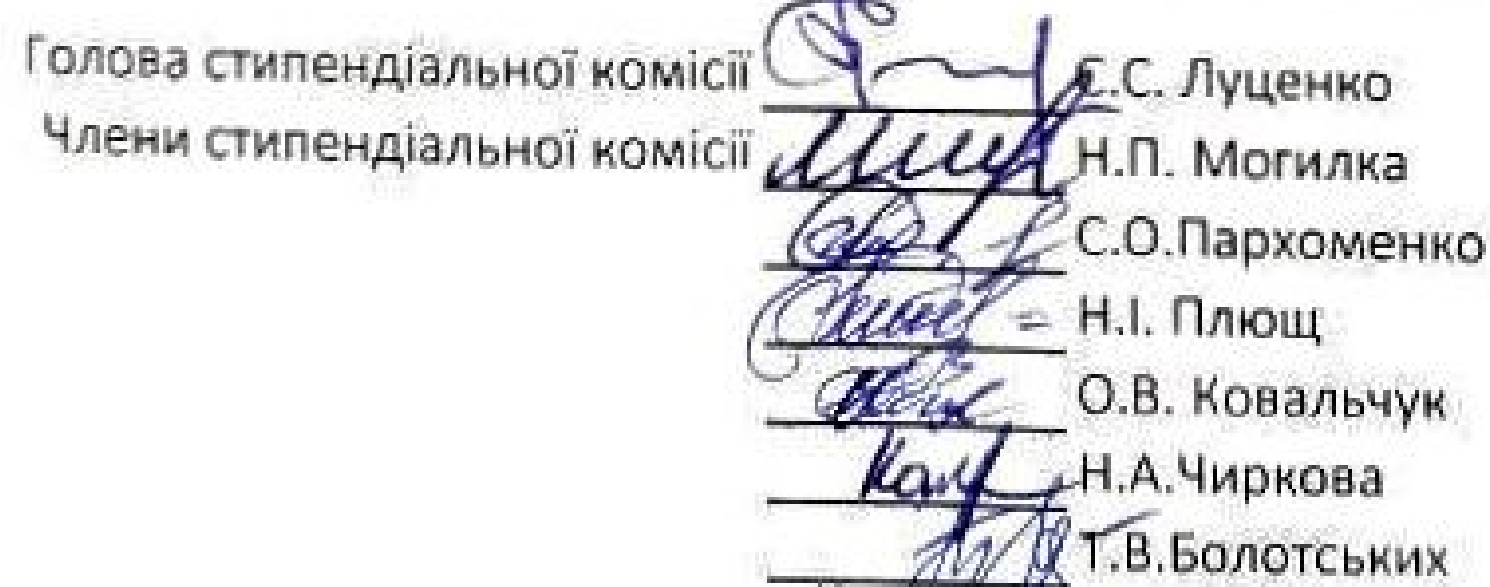 Голова стипендіальної комісії С.С. Луценко
Члени стипендіальної комісії Н.П. Могилка
С.О.Пархоменко
Н.І. Плющ
О.В. Ковальчук
Н.А.Чиркова
Т.В.Болотських